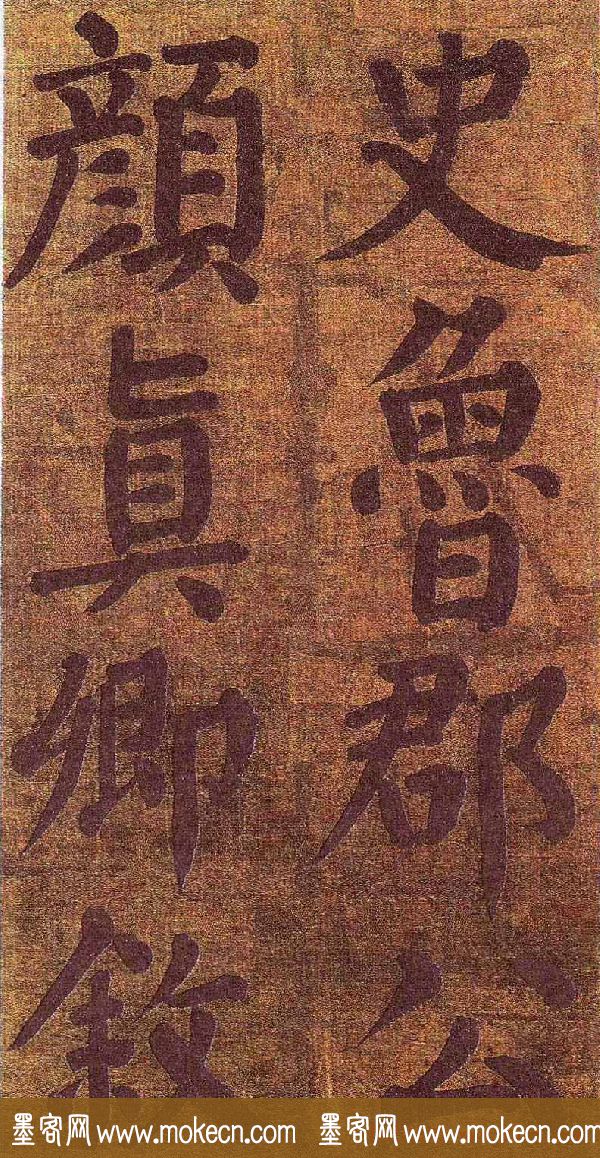 史魯郡公
顏眞卿敘
墨客网 www.mokecn.com 墨客网 www.mokecn.com